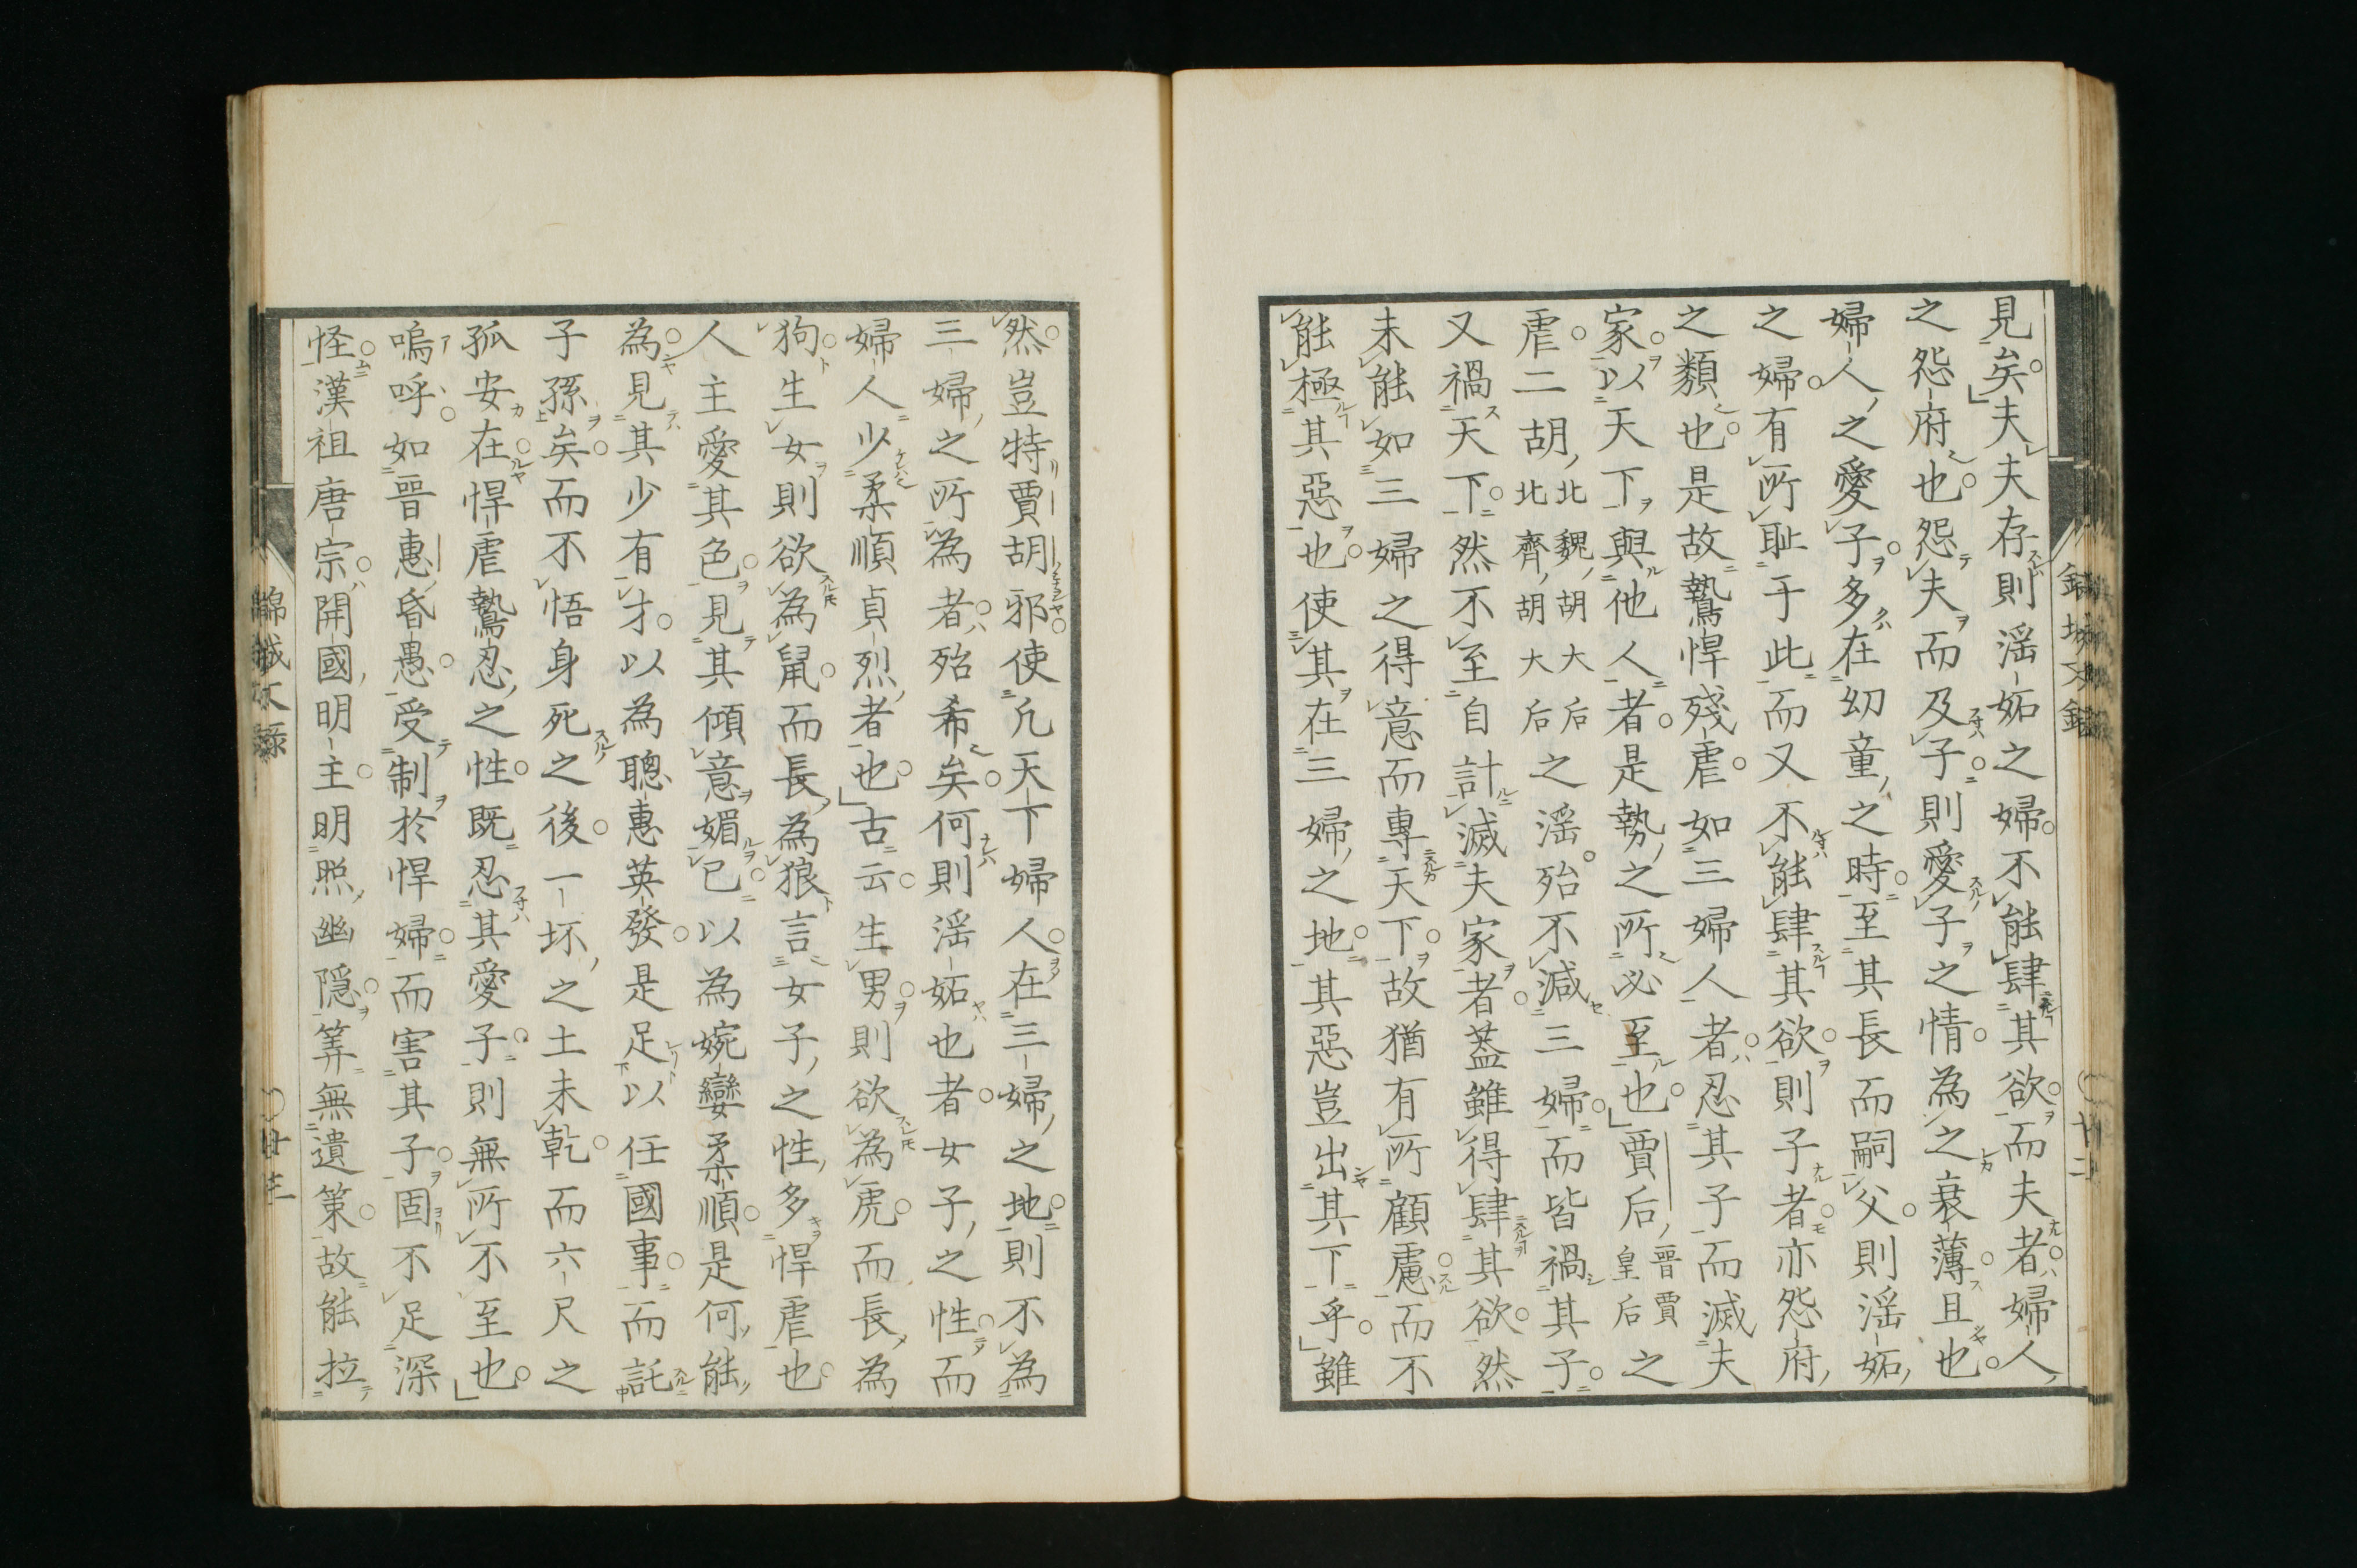 見矣夫夫存則滛妬之婦不能肆其欲而夫者婦人
之怨府也怨夫而及子則愛子之情為之衰薄且也
婦人之愛子多在幼童之時至其長而嗣父則滛妬
之婦有所恥于此而又不能肆其欲則子者亦怨府
之類也是故鷙悍殘虐如三婦人者忍其子而滅夫
家以天下與他人者是勢之所必至也賈后晉賈皇后之
虐二胡北魏胡太后北齊胡太后之滛殆不減三婦而皆禍其子
又禍天下然不至自計滅夫家者葢雖得肆其欲然
未能如三婦之得意而專天下故猶有所顧慮而不
能極其惡也使其在三婦之地其惡豈出其下乎雖
然豈特賈胡邪使凢天下婦人在三婦之地則不為
三婦之所為者殆希矣何則滛妬也者女子之性而
婦人少柔順貞烈者也古云生男則欲為虎而長為
狗生女則欲為鼠而長為狼言女子之性多悍虐也
人主愛其色見其傾意媚己以為婉孌柔順是何能
為見其少有才以為聰惠英發是足以任國事而託
子孫矣而不悟身死之後一坏之土未乾而六尺之
孤安在悍虐鷙忍之性既忍其愛子則無所不至也
嗚呼如晉惠昏愚受制於悍婦而害其子固不足深
怪漢祖唐宗開國明主明照幽隠筭無遺策故能拉